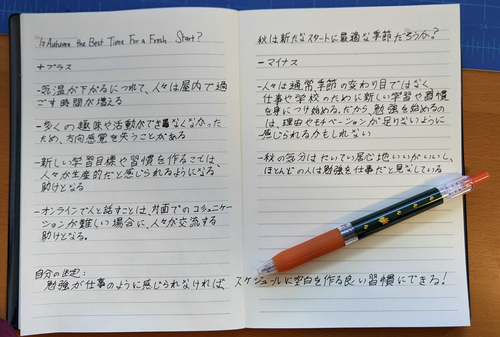 Is Autumn the Best Time For a Fresh Start?
+プラス
-気温が下がるにつれて、人々は屋内で過
ごす時間が増える
-多くの趣味や活動ができなくなった
ため、方向感覚を失うことがある
-新しい学習目標や習慣を作ることは、
人々が生産的だと感じられるようになる
助けとなる
-オンラインで人と話すことは、対面でのコミュニケー
ションが難しい場合に、人々が交流する
助けとなる。
自分の決定:
勉強が仕事のように感じられなければ、スケジュールに空白を作る良い習慣にできる!
秋は新たなスタートに最適な季節だろうか?
-マイナス
-人々は通常季節の変わり目ではなく、
仕事や学校のために新しい学習や習慣
を身につけ始める。だから、勉強を始めるの
は、理由やモチベーションが足りないように
感じられるかもしれない
-秋の気分はたいてい居心地いいがいいし、
ほとんどの人は勉強を仕事だと見なしている